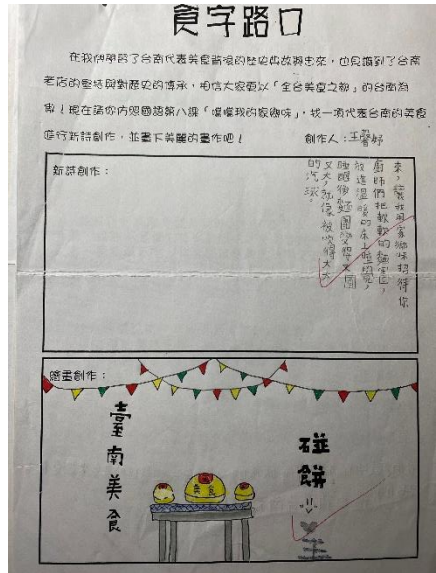 食字路口
在我們學習了台南代表美食背後的歷史與故事由來,也見識到了台南
老店的堅持與對歷史的傳承,相信大家更以「全台美食之都」的台南為
傲!現在請你仿照國語第八課「嚐嚐我的家鄉味」,找一項代表台南的美食
進行新詩創作,並畫下美麗的畫作吧!
創作人:王馨妤
新詩創作:
來,讓我用家鄉味招待你
廚師們把軟軟的麵團,
放進溫暖的床上睡覺,
睡醒後麵團變得又圓
又大,就像被吹得大大
的汽球。
繪畫創作:
臺南美食
美食
碰餅